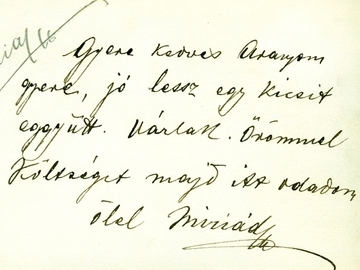 Gyere kedves Aranyom
gyere, jó lessz egy kicsit
eggyütt. Várlak. Örömmel
Költséget majd itt odadom,
ölel